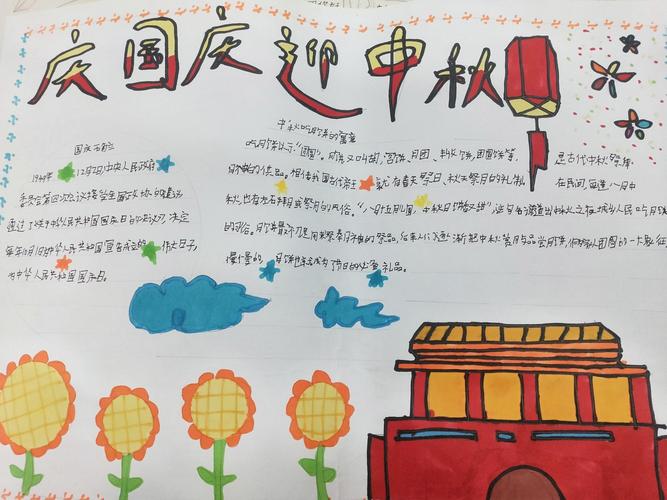 庆国庆迎中秋
国庆的确立
1949年12月2日中央人民政府
委员会第四次会议接受全国政协的建议
通过了《关于中华人民共和国国庆日的决议》,决定
每年10月1日即中华人民共和国宣告成立的伟大日子,
为中华人民共和国国庆日。
中秋吃月饼的寓意
吃月饼以示“团圆”。月饼又叫胡饼、宫饼、月团、团圆饼等,是古代中秋祭拜
月神的供品。相传我国古代帝王就有春天祭日、秋天祭月的礼制。在民间,每逢八月中
秋,也有左右拜月或祭月的风俗。“八月十五月儿圆,中秋月饼香又甜”,这句名谚道出中秋之夜城乡人民吃月饼
的习俗。月饼最初是用来祭奉月神的祭品,后来人们逐渐把中秋赏月与品尝月饼,作为家人团圆的一大象征
慢慢的,月饼也就成为了节日的必备礼品。